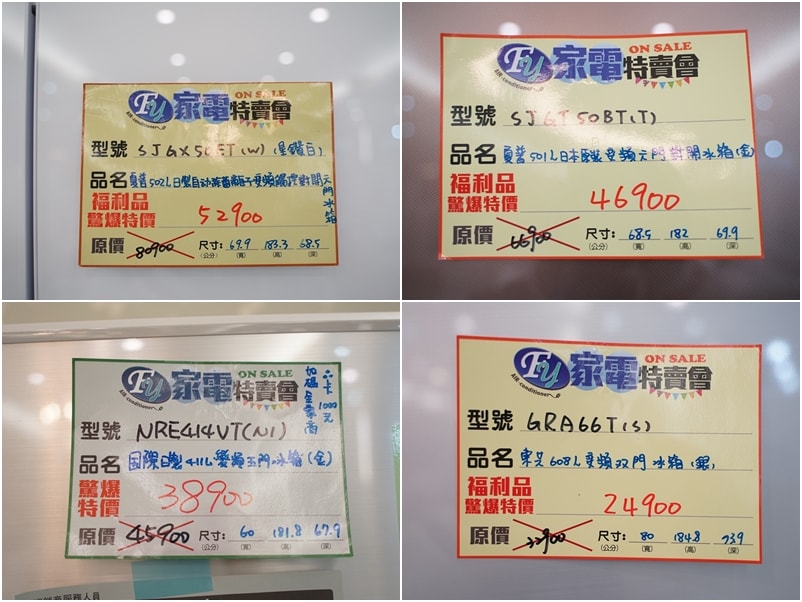 FU 家電特賣會
ON SALE
AIR conditioner
型號 SJGX50ET(W) (星鑽白)
品名 夏普502L日製自动除菌離子變頻觸控對開六門冰箱
福利品
驚爆特價 52900
原價 80900 尺寸: 69.9 183.3 68.5
(公分) (寬) (高) (深)
FU 家電特賣會
ON SALE
AIR conditioner
型號 SJGT50BT(T)
品名 夏普501L日本製变頻六門對開冰箱(金)
福利品
驚爆特價 46900
原價 66900 尺寸: 68.5 182 69.9
(公分) (寬) (高) (深)
FU 家電特賣會
ON SALE
AIR conditioner
1000元
型號 NRE414VT(N1)
品名 國際日製411L變頻五門冰箱(金)
驚爆
特價 38900
原價 45900 尺寸: 60 181.8 67.9
(公分) (寬) (高) (深)
服務人員
FU 家電特賣會
ON SALE
AIR conditioner
型號 GRA66T(S)
品名 東芝608L变頻双門冰箱(銀)
福利品
驚爆特價 24900
原價 尺寸: 80 184.8 73.9
(公分) (寬) (高) (深)